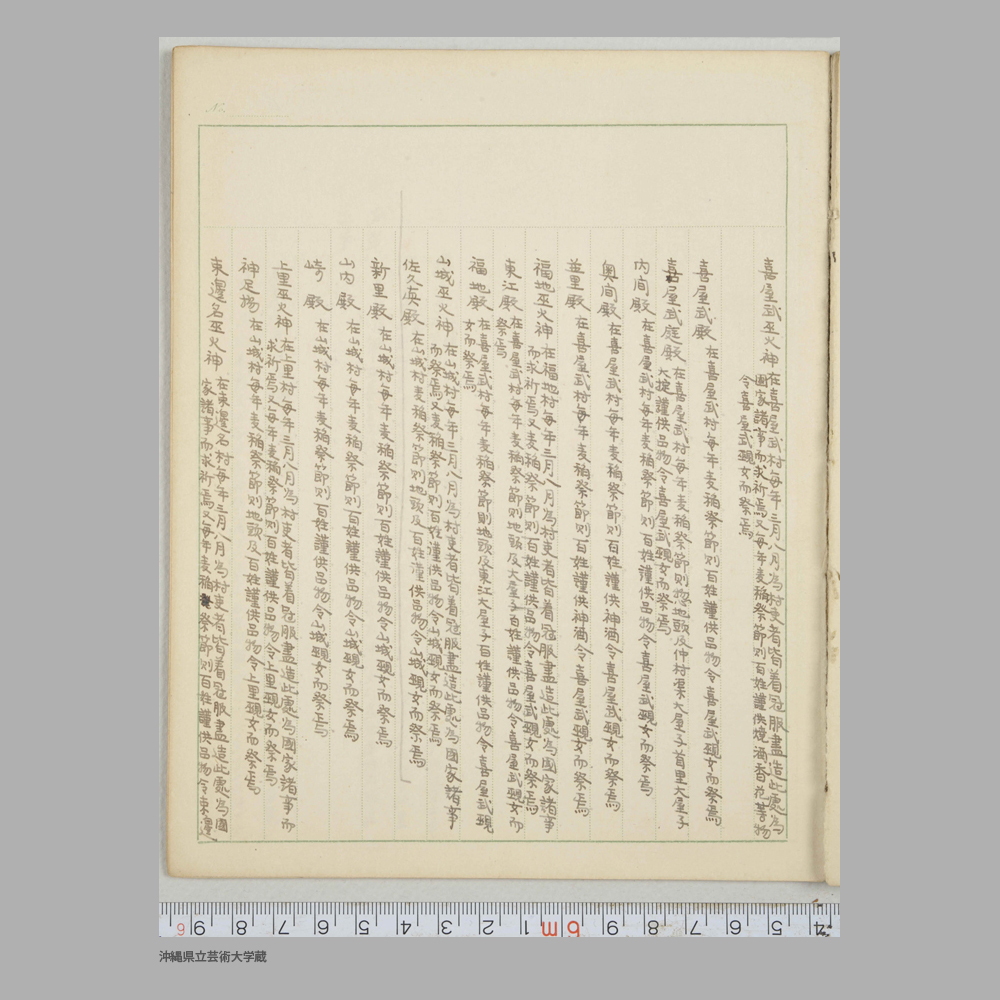 喜屋武巫火神 在喜屋武村每年三月八月為村吏者皆着冠服盡造此處為
國家諸事而求祈焉又每年麦稲祭節則百姓謹供焼酒香花等物
令喜屋武覡女而祭焉
喜屋武殿 在喜屋武村每年麦稲祭節則百姓謹供品物令喜屋武覡女而祭焉
喜屋武庭殿 在喜屋武村每年麦稲祭節則惣地頭及仲村渠大屋子首里大屋子
大掟謹供品物令喜屋武覡女而祭焉
内間殿 在喜屋武村每年麦稲祭節則百姓謹供品物令喜屋武覡女而祭焉
奥間殿 在喜屋武村每年麦稲祭節則百姓謹供神酒令喜屋武覡女而祭焉
並里殿 在喜屋武村每年麦稲祭節則百姓謹供神酒令喜屋武覡女而祭焉
福地巫火神 在福地村每年三月八月為村吏者皆着冠服盡造此處為國家諸事
而求祈焉又麦稲祭節則百姓謹供品物令喜屋武覡女而祭焉
東江殿 在喜屋武村每年麦稲祭節則地頭及大屋子百姓謹供品物令喜屋武覡女而
祭焉
福地殿 在喜屋武村每年麦稲祭節則地頭及東江大屋子百姓謹供品物令喜屋武覡
女而祭焉
山城巫火神 在山城村每年三月八月為村吏者皆着冠服盡造此處為國家諸事
而祭焉又麦稲祭節則百姓謹供品物令山城覡女而祭焉
佐久真殿 在山城村麦稲祭節則地頭及百姓謹供品物令山城覡女而祭焉
新里殿 在山城村每年麦稲祭節則百姓謹供品物令山城覡女而祭焉
山内殿 在山城村每年麦稲祭節則百姓謹供品物令山城覡女而祭焉
崎殿 在山城村每年麦稲祭節則百姓謹供品物令山城覡女而祭焉
上里巫火神 在上里村每年三月八月為村吏者皆着冠服盡造此處為國家諸事而
求祈焉又每年麦稲祭節則百姓謹供品物令上里覡女而祭焉
神足揚 在山城村每年麦稲祭節則地頭及百姓謹供品物令上里覡女而祭焉
東邊名巫火神 在東邊名村每年三月八月為村吏者皆着冠服盡造此處為國
家諸事而求祈焉又每年麦稲祭節則百姓謹供品物令東邊
沖縄県立芸術大学蔵